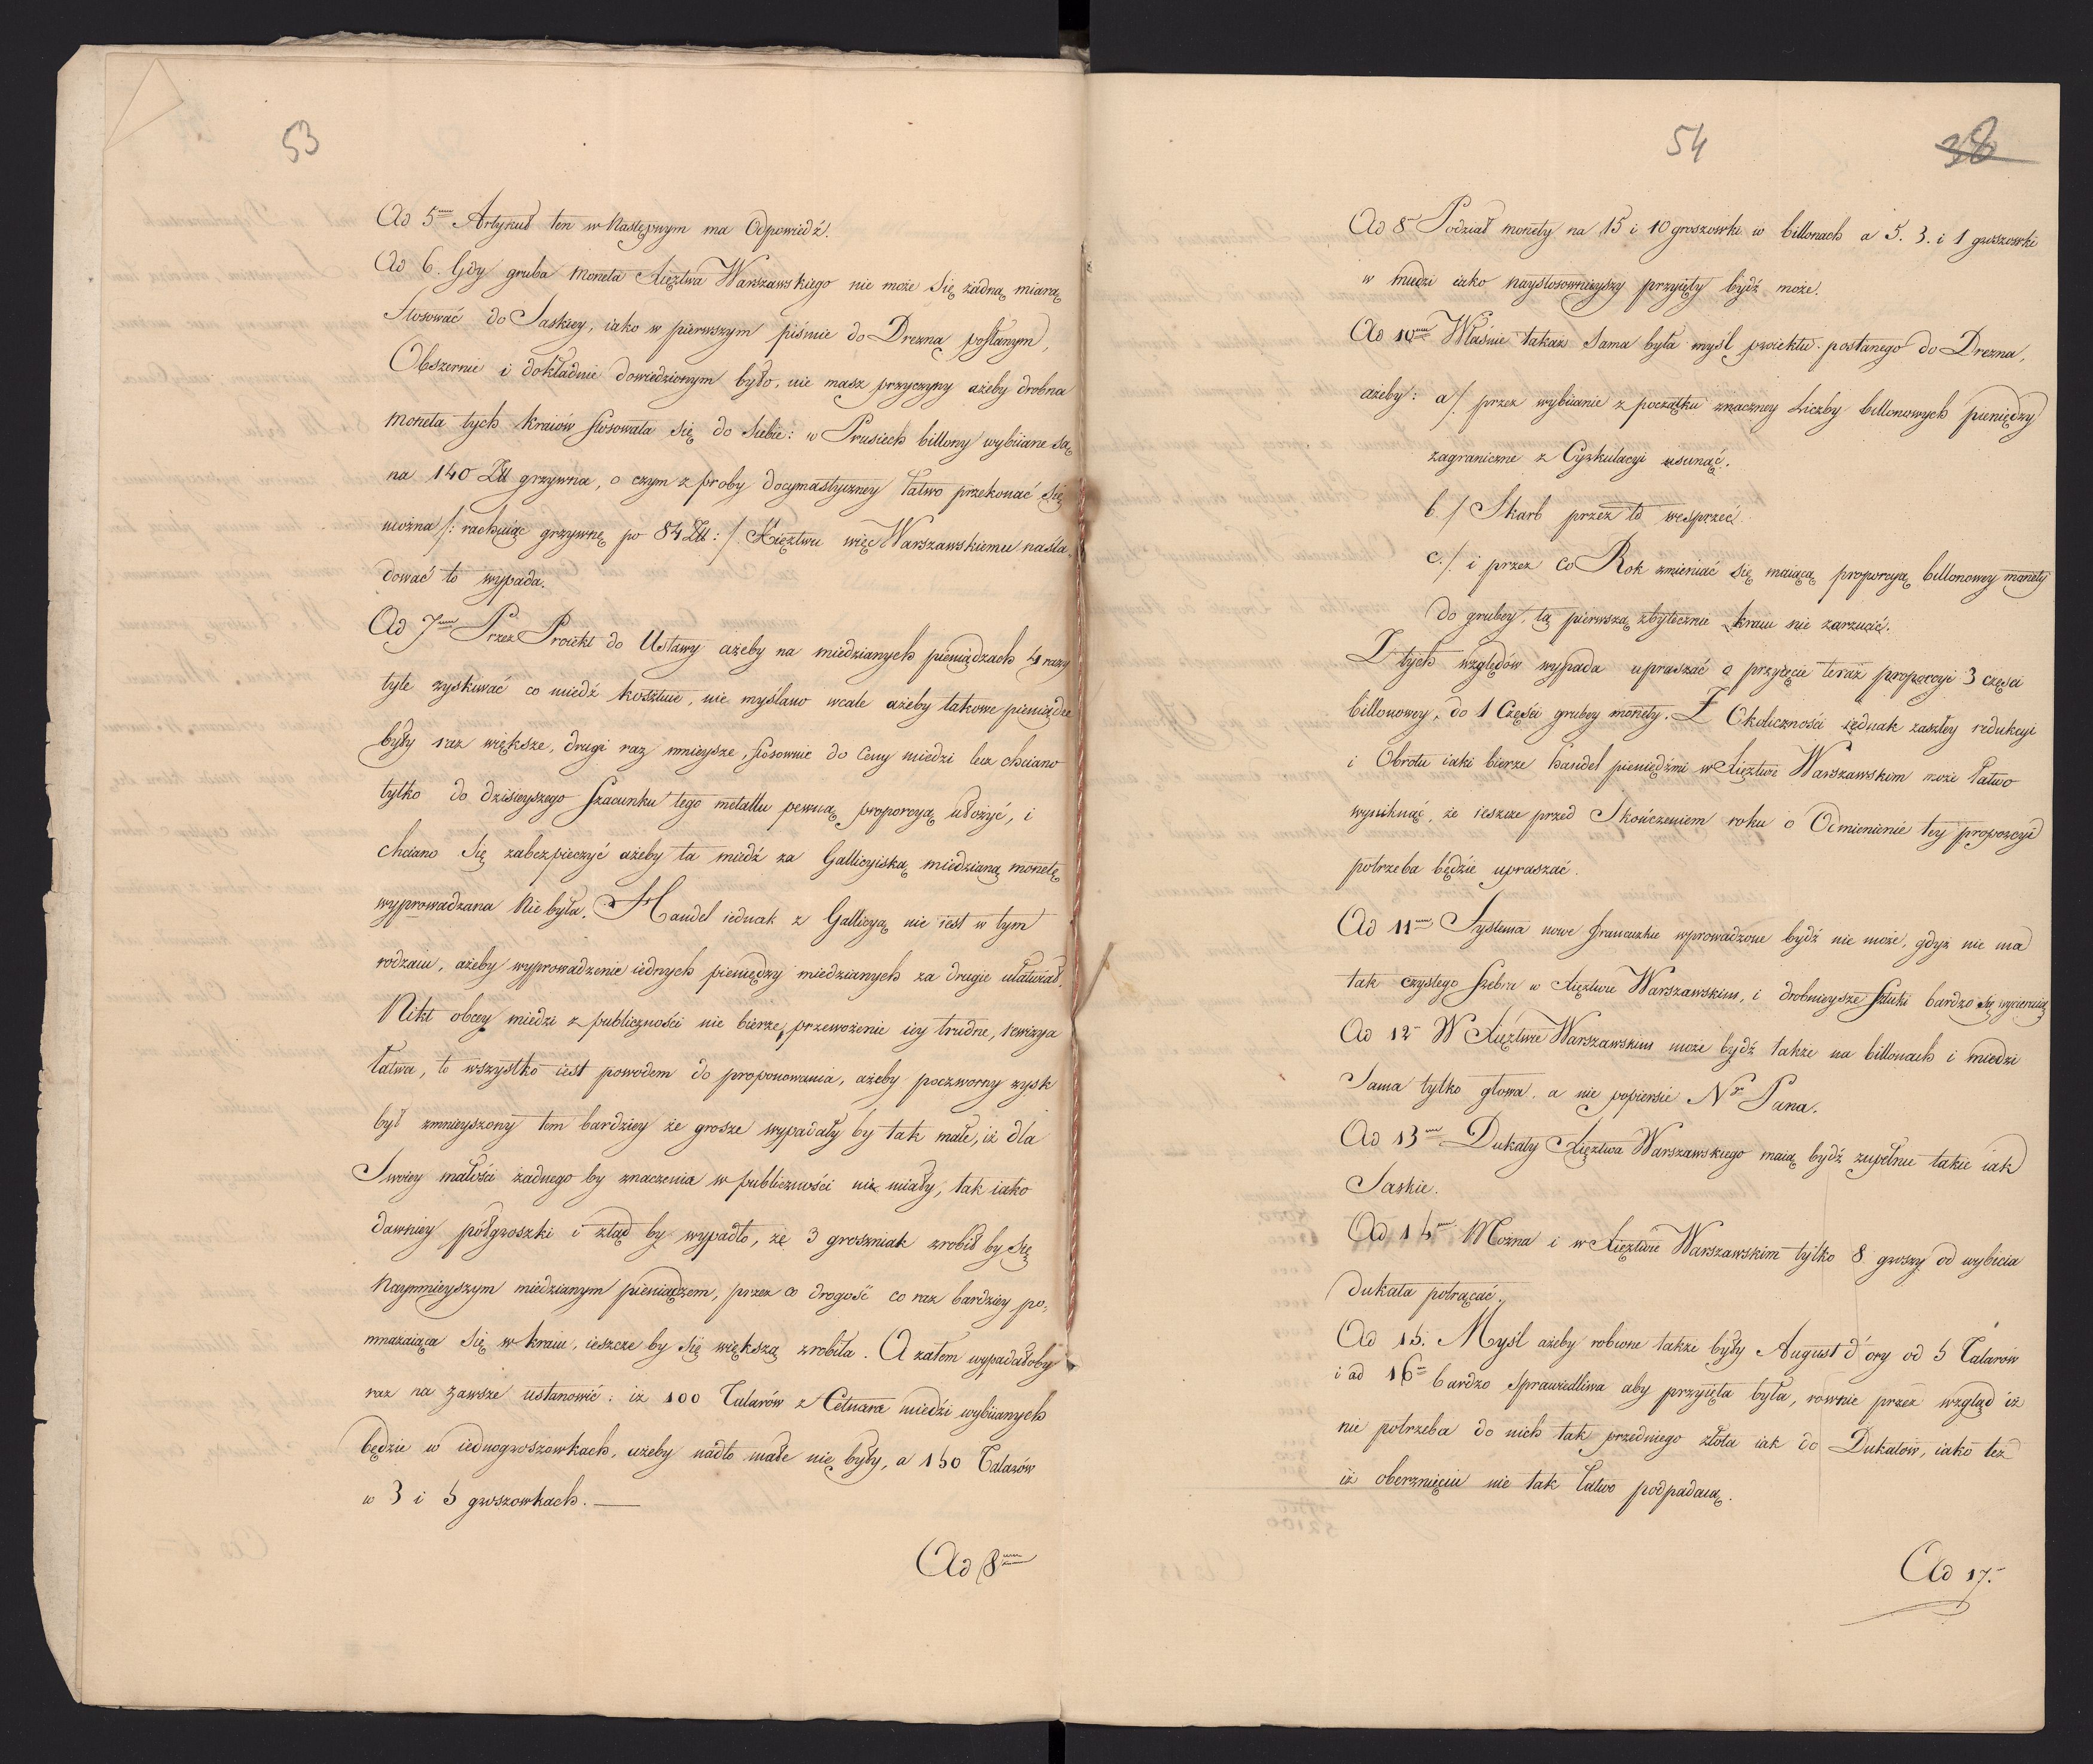 53
Ad 5um Artykuł ten w Następnym ma Odpowiedź.
Ad 6. Gdy gruba Moneta Xięztwa Warszawskiego nie może Się żadną miarą
Stosować do Saskiey, iako w pierwszym piśmie do Drezna posłanym,
Obszernie i dokładnie dowiedzionym było, nie masz przyczyny ażeby drobna
Moneta tych Kraiów stosowała Się do Siebie: w Prusiech billony wybiiane są
na 140 Złł grzywna, o czym z proby docymastyczney łatwo przekonać Się
można /: rachuiąc grzywnę po 84 Złł :/ Xięztwu więc Warszawskiemu naśla-
dować to wypada.
Ad 7um Przez Proiekt do Ustawy ażeby na miedzianych pieniądzach 4 razy
tyle zyskiwać co miedź kosztuie, nie myślano wcale ażeby takowe pieniądze
były raz większe, drugi raz mnieysze, stosownie do Ceny miedzi lecz chciano
tylko do dzisieyszego Szacunku tego metallu pewną proporcyą ułożyć, i
chciano Się zabezpieczyć ażeby ta miedź za Gallicyiską miedzianą monetę
wyprowadzana Nie była. Handel iednak z Gallicyą nie iest w tym
rodzaiu, ażeby wyprowadzenie iednych pieniędzy miedzianych za drugie ułatwiał.
Nikt obcey miedzi z publiczności nie bierze, przewożenie iey trudne, rewizya
łatwa, to wszystko iest powodem do proponowania, ażeby poczworny zysk
był zmnieyszony tem bardziey że grosze wypadały by tak małe, iż dla
Swoiey małości żadnego by znaczenia w publiczności nie miały, tak iako
dawniey półgroszki i ztąd by wypadło, że 3 groszniak zrobił by Się
Naymnieyszym miedzianym pieniądzem, przez co drogość co raz bardziey po-
mnażaiąca Się w kraiu, ieszcze by Się większą zrobiła. A zatem wypadałoby
raz na zawsze ustanowić: iż 100 Talarów z Cetnara miedzi wybiianych
będzie w iednogroszowkach, ażeby nadto małe nie były, a 150 Talarów
w 3 i 5 groszowkach.—
Ad 8um
54
38
Ad 8 Podział monety na 15 i 10 groszowki w billonach a 5. 3. i 1 groszowki
w miedzi iako naystosownieyszy przyięty bydź może.
Ad 10um Właśnie takaż Sama była myśl proiektu posłanego do Drezna,
ażeby: a/. przez wybiianie z początku znaczney Liczby billonowych pieniędzy
zagraniczne z Cyrkulacyi usunąć.
b./ Skarb przez to wesprzeć.
c./. i przez co Rok zmieniać się maiącą proporcyą billonowey monety
do grubey, tą pierwszą zbytecznie kraiu nie zarzucić.
Z tych względów wypada upraszać o przyięcie teraz proporcyi 3 części
billonowey, do 1 Części grubey monety. Z Okoliczności iednak zaszłey redukcyi
i Obrotu iaki bierze handel pieniędźmi w Xięztwie Warszawskim może łatwo
wyniknąć, że ieszcze przed Skończeniem roku o Odmienienie tey proporcyi
potrzeba będzie upraszać.
Ad 11um Systema nowe francuzkie wprowadzone bydź nie może, gdyż nie ma
tak czystego Srebra w Xięztwie Warszawskim, i drobnieysze Sztuki bardzo się wycieraią
Ad 12 W Xięztwie Warszawskim może bydź także na billonach i miedzi
Sama tylko głowa, a nie popiersie Nr. Pana.
Ad 13um Dukaty Xięztwa Warszawskiego maią bydź zupełnie takie iak
Saskie.
Ad 14um Można i w Xięztwie Warszawskim tylko 8 groszy od wybicia
dukata potrącać.
Ad 15. Myśl ażeby robione także były August d'ory od 5 Talarów
i ad 16 bardzo Sprawiedliwa aby przyięta była, rownie przez wzgląd iż
nie potrzeba do nich tak przedniego złota iak do Dukatów, iako też
iż oberznięciu nie tak łatwo podpadaią.
Ad 17.